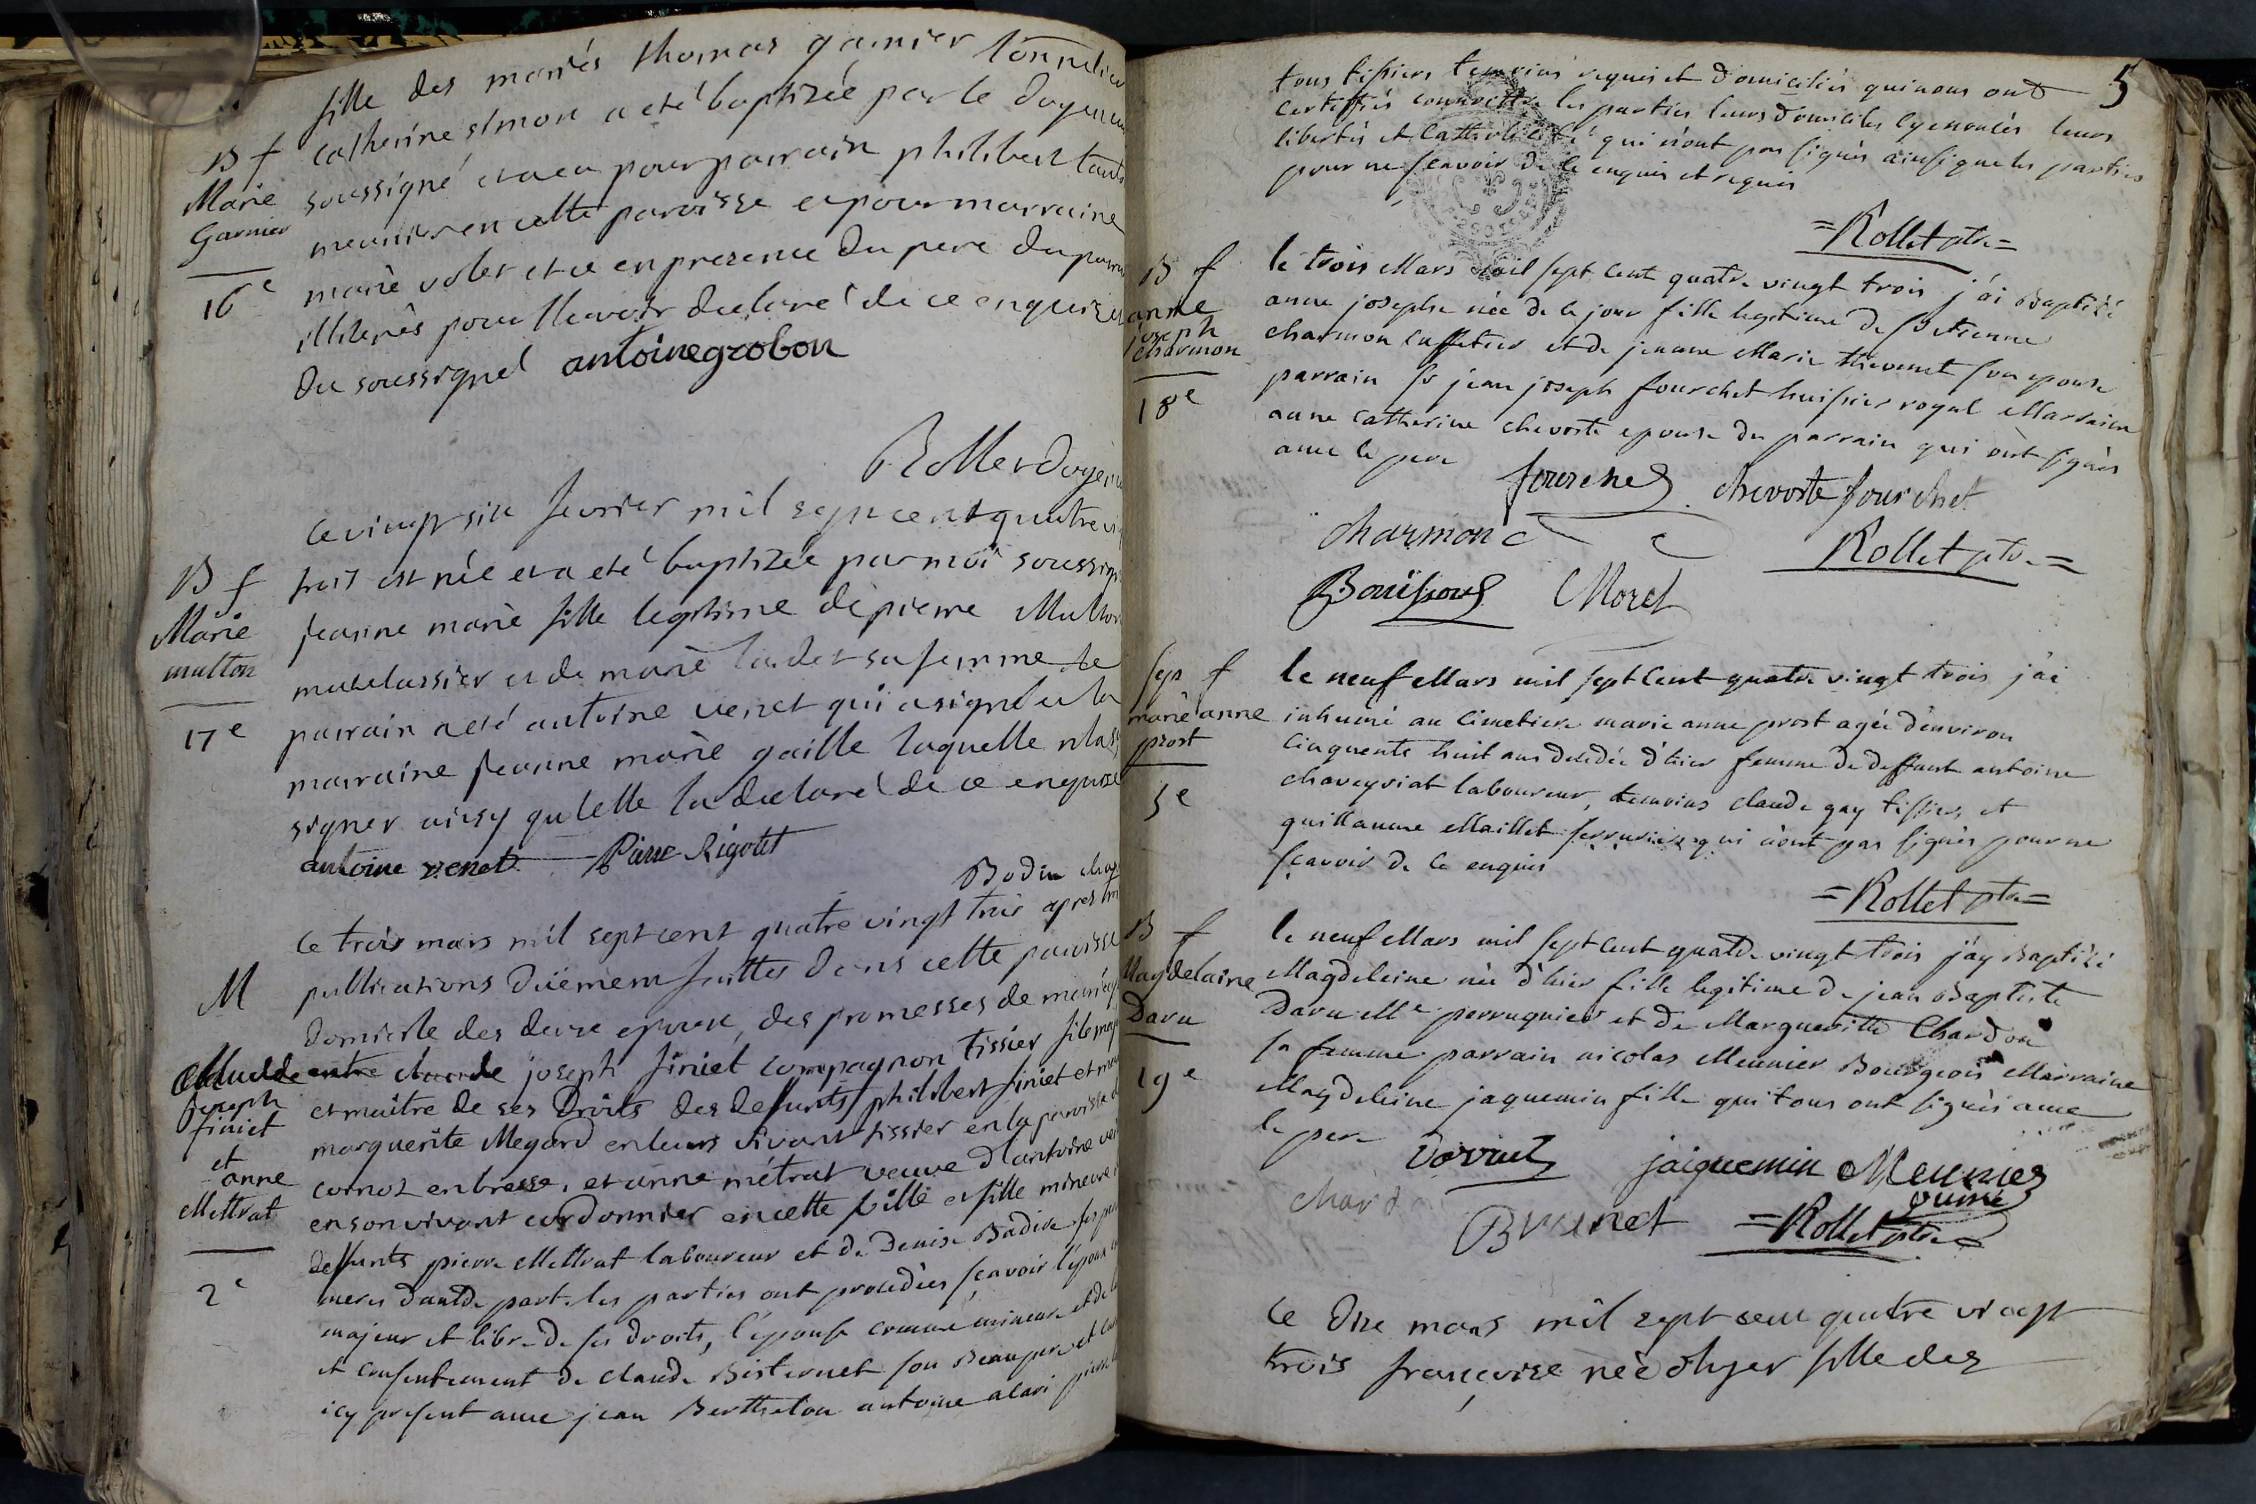 fille des mariés thomas garnier tonnelier
B f
Marie
Garnier
16e
catherine simon a eté baptizée par le doyen
soussigné et a eu pour parrain philibert
meunier en cette paroisse et pour marraine
marie volet et ce en presence du pere du
illiterés pour l'avoir declaré de ce enquis et
du soussigné antoine grobon
Rollet doyen
B f
Marie
multon
17e
Ce vingt six fevrier mil sept cent quatre
trois est née et a eté baptizée par moi
jeanne marie fille legitime de pierre
matelassier et de marie sa femme le
parrain a eté antoine venet qui a signé et la
marraine jeanne marie gaille laquelle
signer ainsy qu'elle l'a declaré de ce
antoine venet Pierre Rigollet
Bodin
M
Claude
joseph
finiet
et
anne
Mettrat
2e
Ce trois mars mil sept cent quatre vingt trois apres
publications düement faittes dans cette paroisse
domicile des deux epoux, des promesses de
entre claude joseph finiet compagnon tissier fils
et maitre de ses droits des defunts philibert finiet et
marguerite Megard en leurs vivant tissier en la paroisse
cornoz en bresse, et anne métrat veuve d'antoine
en son vivant cordonnier en cette ville et fille mineure
deffunts pierre Mettrat laboureur et de Denise Badive ses
meres d'autre part. les parties ont procedées sçavoir l'epoux
majeur et libre de ses droits, l'epouse comme mineure et de
et consentement de claude Bisternet son Beaupere et
icy present avec jean Berthelon antoine alari pierre
5
tous tissiers temoins requis et domiciliés qui nous ont
certiffiés connoitre les parties leurs domiciles cy enoncés leurs
libertés et catholicité qui n'ont pas signés ainsi que les parties
pour ne sçavoir de ce enquis et requis
=Rollet ptre=
B f
anne
joseph
charmon
18e
le trois Mars mil sept cent quatre vingt trois j'ai Baptizé
anne josephe née de ce jour fille legitime de Sr etienne
charmon caffetier et de jeanne Marie thevenet son epouse
parrain sr jean joseph fourchet huissier royal Marraine
anne catherine chevorte epouse du parrain qui ont signés
avec le pere
fourchet chevorte fourchet
charmon
Rollet ptre=
Bouissoud Moret
Sep f
marie anne
prost
5e
le neuf Mars mil sept Cent quatre vingt trois j'ai
inhumé au Cimetiere marie anne prost agée d'environ
Cinquante huit ans decedée d'hier femme de deffunt antoine
chaveyriat laboureur, temoins claude gay tissier, et
guillaume Maillet serrurier qui n'ont pas signés pour ne
sçavoir de ce enquis
=Rollet ptre=
B f
Magdelaine
Daru
19e
le neuf Mars mil sept cent quatre vingt trois j'ay Baptizé
Magdeleine née d'hier fille legitime de jean Baptiste
Daru Me perruquier et de Margueritte Chardon
sa femme parrain nicolas Meunier Bourgeois Marraine
Magdeleine jaquemin fille qui tous ont signés avec
le pere
jaiquemin Meunier
Brunet =Rollet ptre=
Ce dix mars mil sept cent quatre vingt
trois françoise née d'hyer fille des